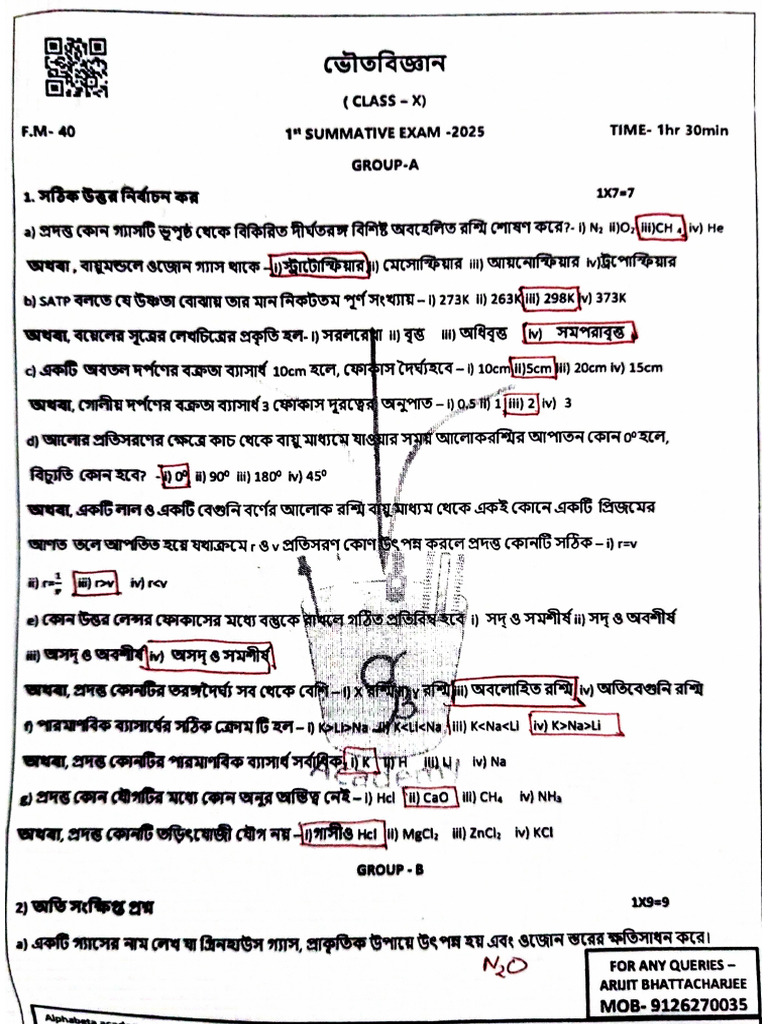 ভৌতবিজ্ঞান
( CLASS – X)
F.M- 40 1st SUMMATIVE EXAM -2025 TIME- 1hr 30min
GROUP-A
1. সঠিক উত্তর নির্বাচন কর 1X7=7
a) প্রদত্ত কোন গ্যাসটি ভূপৃষ্ঠ থেকে বিকিরিত দীর্ঘতরঙ্গ বিশিষ্ট অবহেলিত রশ্মি শোষণ করে?- i) N₂ ii)O₂ iii)CH₄ iv) He
অথবা , বায়ুমন্ডলে ওজোন গ্যাস থাকে – i)স্ট্রাটোস্ফিয়ার ii) মেসোস্ফিয়ার iii) আয়নোস্ফিয়ার iv)ট্রপোস্ফিয়ার
b) SATP বলতে যে উষ্ণতা বোঝায় তার মান নিকটতম পূর্ণ সংখ্যায় – i) 273K ii) 263K iii) 298K iv) 373K
অথবা, বয়েলের সূত্রের লেখচিত্রের প্রকৃতি হল- i) সরলরেখা ii) বৃত্ত iii) অধিবৃত্ত iv) সমপরাবৃত্ত
c) একটি অবতল দর্পণের বক্রতা ব্যাসার্ধ 10cm হলে, ফোকাস দৈর্ঘ্যহবে – i) 10cm ii)5cm iii) 20cm iv) 15cm
অথবা, গোলীয় দর্পণের বক্রতা ব্যাসার্ধ 3 ফোকাস দূরত্বের অনুপাত – i) 0.5 ii) 1 iii) 2 iv) 3
d) আলোর প্রতিসরণের ক্ষেত্রে কাচ থেকে বায়ু মাধ্যমে যাওয়ার সময় আলোকরশ্মির আপাতন কোন 0⁰ হলে,
বিচ্যুতি কোন হবে? - i) 0⁰ ii) 90⁰ iii) 180⁰ iv) 45⁰
অথবা, একটি লাল ও একটি বেগুনি বর্ণের আলোক রশ্মি বায়ু মাধ্যম থেকে একই কোনে একটি প্রিজমের
আণত তলে আপতিত হয়ে যথাক্রমে r ও v প্রতিসরণ কোণ উৎপন্ন করলে প্রদত্ত কোনটি সঠিক – i) r=v
ii) r=1/v iii) r>v iv) r<v
e) কোন উত্তর লেন্সর ফোকাসের মধ্যে বস্তুকে রাখলে গঠিত প্রতিবিম্ব হবে i) সদ্ ও সমশীর্ষ ii) সদ্ ও অবশীর্ষ
iii) অসদ্ ও অবশীর্ষ iv) অসদ্ ও সমশীর্ষ
অথবা, প্রদত্ত কোনটির তরঙ্গদৈর্ঘ্য সব থেকে বেশি – i) X রশ্মি ii) γ রশ্মি iii) অবলোহিত রশ্মি iv) অতিবেগুনি রশ্মি
f) পারমাণবিক ব্যাসার্ধের সঠিক ক্রোমটি হল – i) K>Li>Na ii) K<Li<Na iii) K<Na<Li iv) K>Na>Li
অথবা, প্রদত্ত কোনটির পারমাণবিক ব্যাসার্ধ সর্বাধিক i) K ii) H iii) Li iv) Na
g) প্রদত্ত কোন যৌগটির মধ্যে কোন অনুর অস্তিত্ব নেই – i) Hcl ii) CaO iii) CH₄ iv) NH₃
অথবা, প্রদত্ত কোনটি তড়িৎযোজী যৌগ নয় – i)গ্যাসীও Hcl ii) MgCl₂ iii) ZnCl₂ iv) KCl
Academy
GROUP - B
2) অতি সংক্ষিপ্ত প্রশ্ন 1X9=9
a) একটি গ্যাসের নাম লেখ যা গ্রিনহাউস গ্যাস, প্রাকৃতিক উপায়ে উৎপন্ন হয় এবং ওজোন স্তরের ক্ষতিসাধন করে।
N₂O
FOR ANY QUERIES –
ARIJIT BHATTACHARJEE
MOB- 9126270035